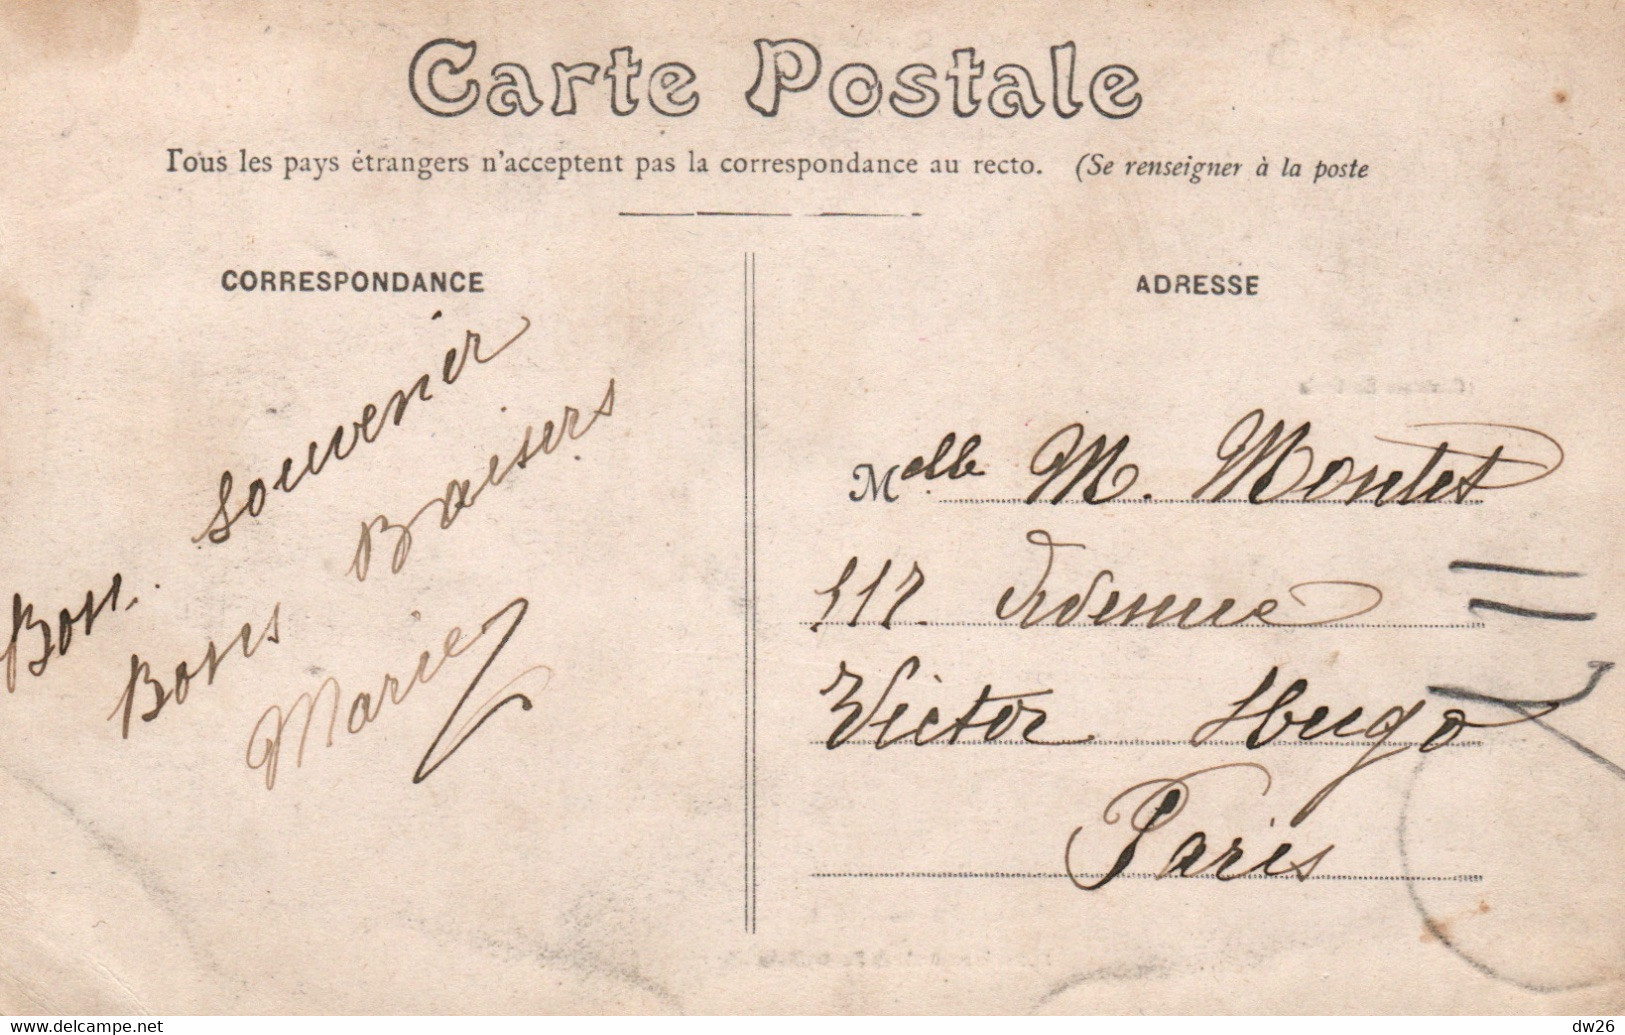 Carte Postale
Tous les pays étrangers n'acceptent pas la correspondance au recto. (Se renseigner à la poste
CORRESPONDANCE
Bon souvenir
Bons Baisers
Marie
ADRESSE
Melle M. Montet
117 Avenue
Victor Hugo
Paris
https://www.delcampe.net
dw26